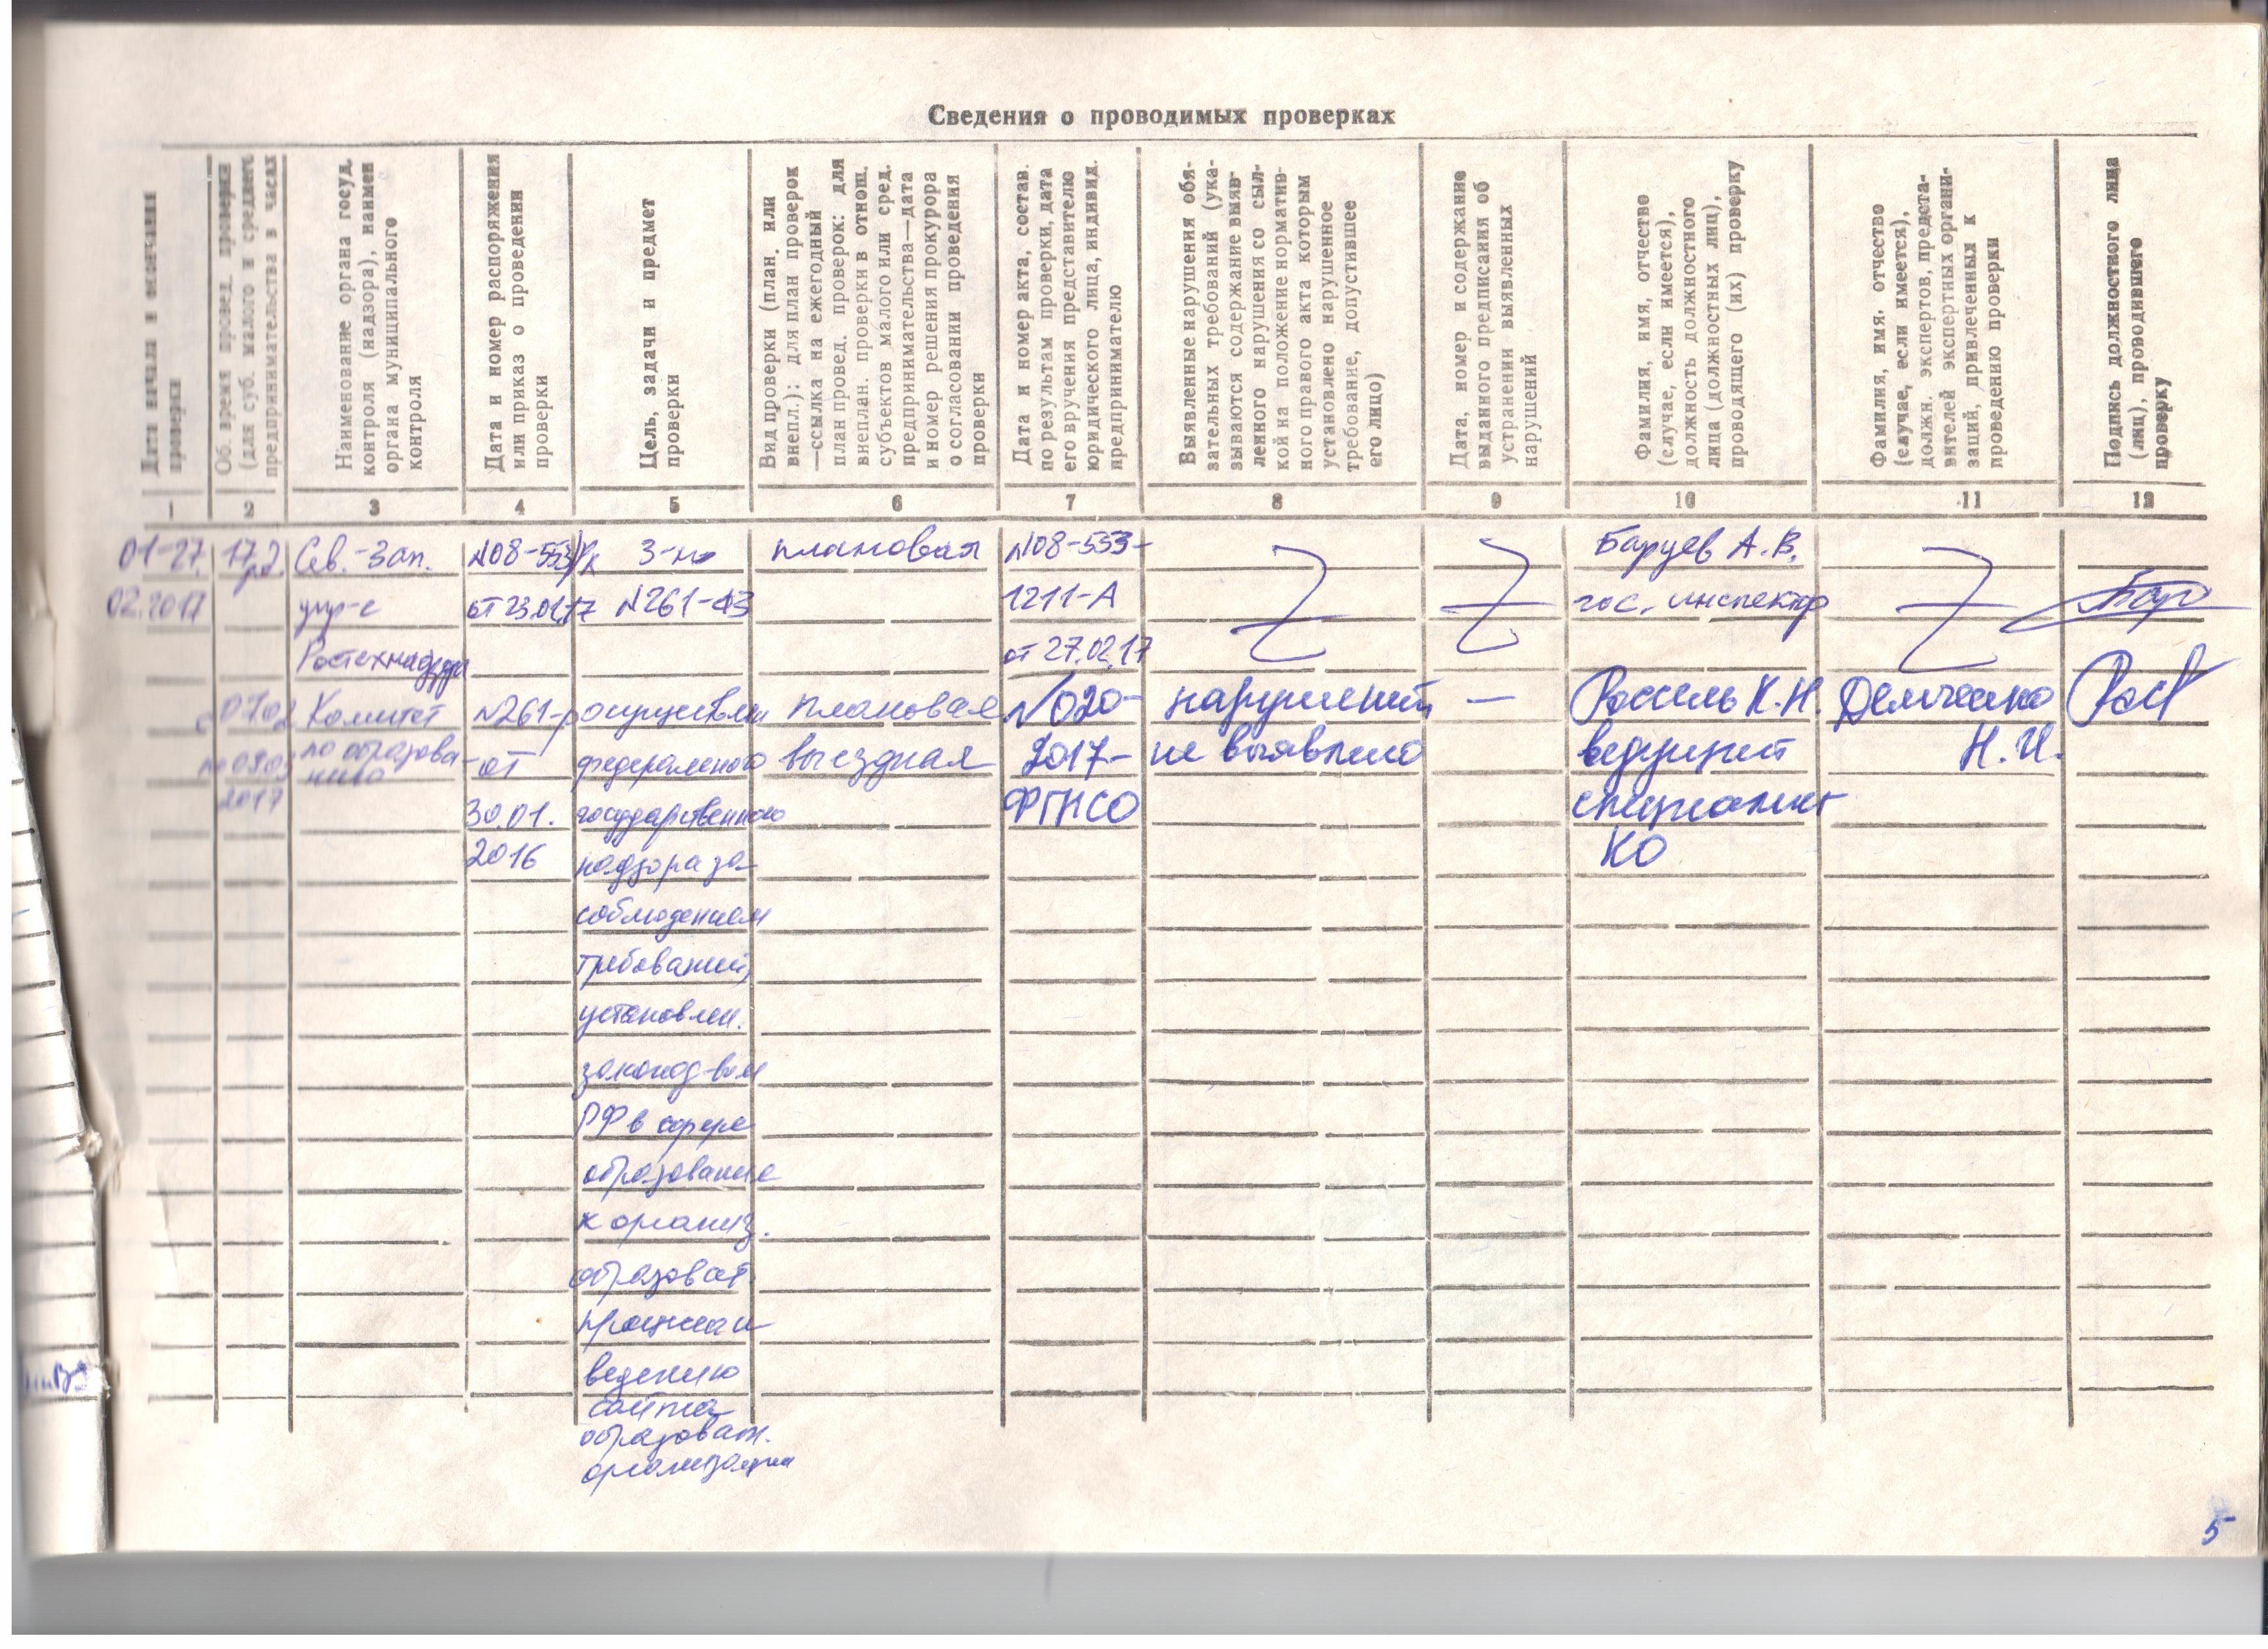 Сведения о проводимых проверках
Дата начала и окончания
проверки
Об. время провед. проверки
(для суб. малого и среднего
предпринимательства в часах
Наименование органа госуд.
контроля (надзора), наимен
органа муниципального
контроля
Дата и номер распоряжения
или приказ о проведении
проверки
Цель, задачи и предмет
проверки
Вид проверки (план. или
внепл.): для план проверок
—ссылка на ежегодный
план провед. проверок: для
внеплан. проверки в отнош.
субъектов малого или сред.
предпринимательства—дата
и номер решения прокурора
о согласовании проведения
проверки
Дата и номер акта, состав.
по результам проверки, дата
его вручения представителю
юридического лица, индивид.
предпринимателю
Выявленные нарушения обя-
зательных требований (ука-
вываются содержание выяв-
ленного нарушения со сыл-
кой на положение норматив-
ного правого акта которым
установлено нарушенное
требование, допустившее
его лицо)
Дата, номер и содержание
выданного предписания об
устранении выявленных
нарушений
Фамилия, имя, отчество
(случае, если имеется),
должность должностного
лица (должностных лиц),
проводящего (их) проверку
Фамилия, имя. отчество
(случае, если имеется),
должн. экспертов, предста-
вителей экспертных органи-
заций, привлеченных к
проведению проверки
Подпись должностного лица
(лиц), проводившего
проверку
1 2 3 4 5 6 7 8 9 10 11 12
01-27.
02.2017
17
Сев.-Зап.
упр-е
Ростехнадзора
№08-553/Рк
от 23.01.17
З-н
№261-ФЗ
плановая
№08-553-
1211-А
от 27.02.17
Баруев А.В.
гос. инспектор
с 07.02
по 09.03
2017
Комитет
по образова-
нию
№261-р
от
30.01.
2016
осуществлен
федерального
государственного
надзора за
соблюдением
требований,
установлен.
законод-вом
РФ в сфере
образования
к организ.
образоват.
процесса и
ведению
сайта
образоват.
организации
плановая
выездная
№020-
2017-
ФГНСО
нарушений
не выявлено
—
Россель К.Н.
ведущий
специалист
КО
Демченко
Н.И.
5